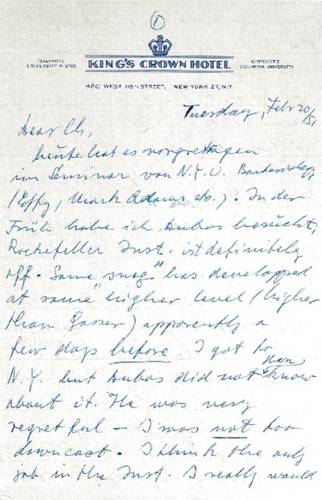 ①
TELEPHONE
UNIVERSITY 4-2700
KING'S CROWN HOTEL
OPPOSITE
COLUMBIA UNIVERSITY
420 WEST 116th STREET, NEW YORK 27, N.Y.
Tuesday, Feb 20/51
Dear Ch,
heute hat es vorgetragen
im Seminar von N.Y.U. Bacteriology
(Effy, Mark Adams etc.). In der
Früh habe ich Dubos besucht,
Rockefeller Inst. ist definitely
off. Some "snag" has developped
at some "higher level" (higher
than Gasser) apparently a
few days before I got to
N.Y. but Dubos did not then know
about it. He was very
regretful – I was not too
downcast. I think the only
job in the Inst. I really would